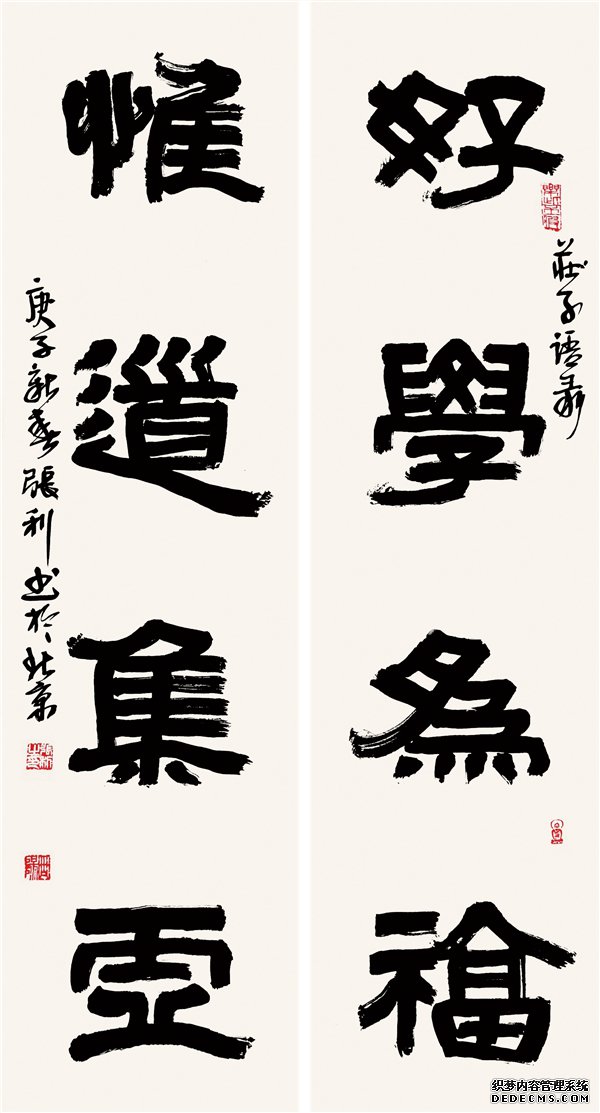 好學為福
莊子語
惟道集虛
庚子新春張利书於北京
织梦内容管理系统
DEDECMS.COM